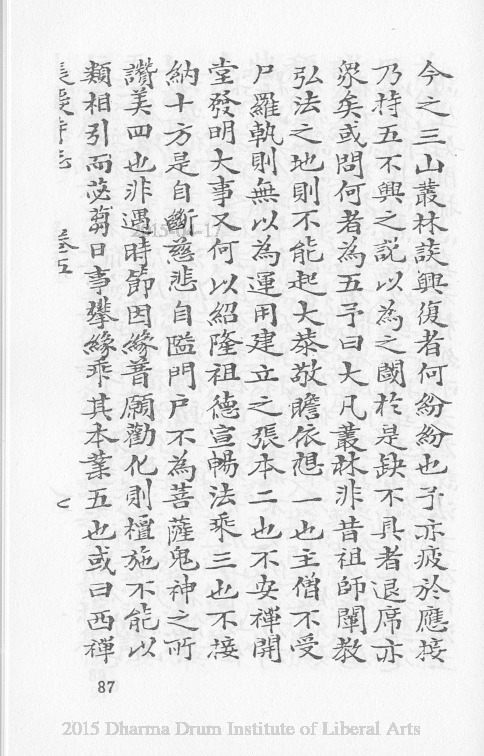 今之三山叢林談興復者何紛紛也予亦疲於應接
乃持五不興之説以為之國於是缺不具者退席亦
衆矣或問何者為五予曰大凡叢林非昔祖師闡教
弘法之地則不能起大㳟敬瞻依想一也主僧不受
尸羅軌則無以為運用建立之張本二也不安禪開
堂發明大事又何以紹隆祖德宣暢法乘三也不接
納十方是自斷慈悲自隘門戸不為菩薩鬼神之所
讚美四也非遇時節因緣普願勸化則檀施不能以
類相引而苾蒭日事攀緣乖其本業五也或曰西禪
卷五
七
87
2015-04-17
2015 Dharma Drum Institute of Liberal Arts